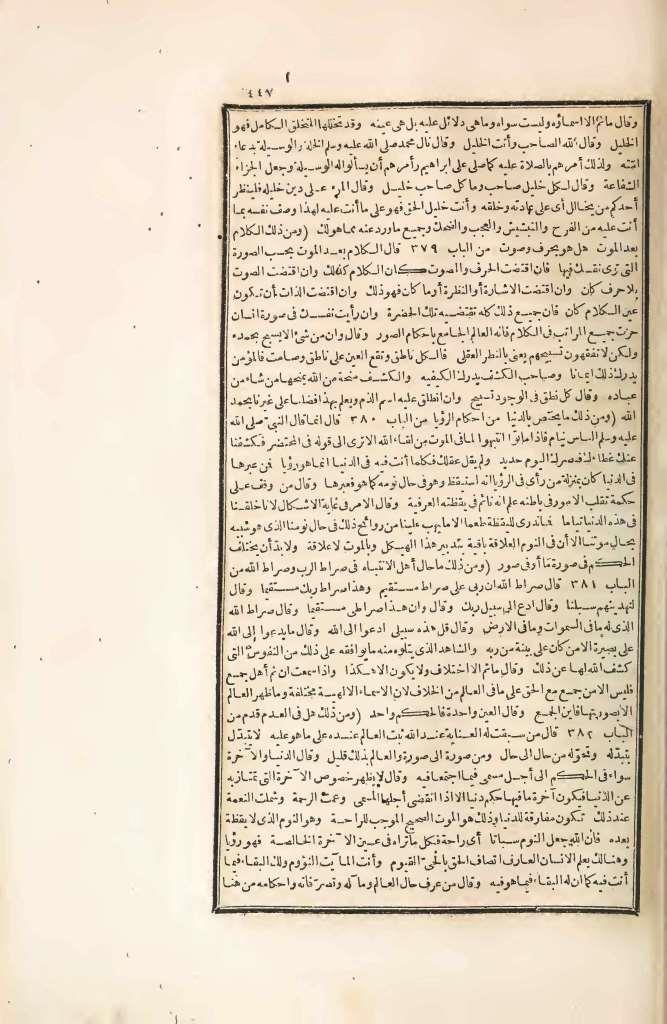 ٤٤٧
وقال ما ثم الا اسماؤه وليست سواه وما هى دلائل عليه بل هى عينه وقد تخللها المتخلق الكامل فهو
الخليل وقال لله الصاحب وأنت الخليل وقال نال محمد صلى الله عليه وسلم الخلة والوسيلة بدعاء
امته ولذلك أمرهم بالصلاة عليه كما صلى على ابراهيم وأمرهم أن يسألوا له الوسيلة وجعل الجزاء
الشفاعة وقال لكل خليل صاحب وما كل صاحب خليل وقال المرء على دين خليله فلينظر
أحدكم من يخالل أى على عادته وخلقه وأنت خليل الحق فهو على ما أنت عليه لهذا وصف نفسه بما
أنت عليه من الفرح والتبشيش والتعجب والضحك وجميع ما ورد عنه مما هو لك (ومن ذلك الكلام
بعد الموت هل هو بحرف وصوت من الباب ٣٧٩ قال الكلام بعد الموت بحسب الصورة
التى ترى نفسك فيها فان اقتضت الحرف والصوت كان الكلام كذلك وان اقتضت الصوت
بلا حرف كان وان اقتضت الاشارة أو النظرة أو ما كان فهو ذلك وان اقتضت الذات بأن تكون
عين الكلام كان فان جميع ذلك كله تقتضيه تلك الحضرة وان رأيت نفسك فى صورة انسان
حزت جميع المراتب فى الكلام فانه العالم الجامع باحكام الصور وقال وان من شئ الا يسبح بحمده
ولكن لا تفقهون تسبيحهم يعنى بالنظر العقلى فالكل ناطق وتقع العين على ناطق وصامت فالمؤمن
يدرك ذلك ايمانا وصاحب الكشف يدرك الكيفيه والكشف منحة من الله يمنحها من شاء من
عباده وقال كل نطق فى الوجود تسبيح وان انطلق عليه اسم الذم ويعلم بهذا فضلنا على غيرنا بحمد
الله (ومن ذلك ما يختص بالدنيا من احكام الرؤيا من الباب ٣٨٠ قال انما قال النبى صلى الله
عليه وسلم الناس نيام فاذا ماتوا انتبهوا لما فى الموت من لقاء الله الاترى الى قوله فى المحتضر فكشفنا
عنك غطاءك فبصرك اليوم حديد ولم يقل عقلك فكلما أنت فيه فى الدنيا انما هو رؤيا فمن عبرها
فى الدنيا كان بمنزلة من رأى فى الرؤيا انه استيقظ وهو فى حال نومه كما هو فعبرها وقال من وقف على
حكمة تقلب الامور فى باطنه علم انه نائم فى يقظته العرفية وقال الامر فى غاية الاشكال لانا خلقنا
فى هذه الدنيا نياما فما ندرى لليقظة طعما الا ما يهب علينا من روائح ذلك فى حال نومنا الذى هو شبيه
بحال موتنا الا أن فى النوم العلاقة باقية بتدبير هذا الهيكل وبالموت لا علاقة ولا بد أن يختلف
الحكم فى صورة ما أو فى صور (ومن ذلك ما حال أهل الانتباه فى صراط الرب وصراط الله من
الباب ٣٨١ قال صراط الله ان ربى على صراط مستقيم وهذا صراط ربك مستقيما وقال
لنهدينهم سبلنا وقال ادع الى سبيل ربك وقال وان هذا صراطى مستقيما وقال صراط الله
الذى له ما فى السموات وما فى الارض وقال قل هذه سبيلى ادعوا الى الله وقال ما يدعوا الى الله
على بصيرة الا من كان على بينة من ربه والشاهد الذى يتلوه منه ما يوافقه على ذلك من النفوس التى
كشف الله لها عن ذلك وقال ما ثم الا اختلاف ولا يكون الا هكذا واذا سمعت ان ثم أهل جمع
فليس الا من جمع مع الحق على ما فى العالم من الخلاف لان الاسماء الالهية مختلفة وما ظهر العالم
الا بصورتها فاين الجمع وقال العين واحدة فالحكم واحد (ومن ذلك هل فى العدم قدم من
الباب ٣٨٢ قال من سبقت له العناية عند الله ثبت العالم عنده على ما هو عليه لا تتبدل
بتبدله وتحوله من حال الى حال ومن صورة الى صورة والعالم بذلك قليل وقال الدنيا والآخرة
سواء فى الحكم الى أجل مسمى فيما اجتمعا فيه وقال لا يظهر خصوص الآخرة التى تمتاز به
عن الدنيا فيكون آخرة ما فيها حكم دنيا الا اذا انقضى أجلها المسمى وعمت الرحمة وشملت النعمة
عند ذلك تكون مفارقة للدنيا وذلك هو الموت الصحيح الموجب للراحة وهو النوم الذى لا يقظة
بعده فان الله جعل النوم سباتا أى راحة فكل ما تراه فى عين الآخرة الخالصة فهو رؤيا
وهنالك يعلم الانسان العارف اتصاف الحق بالحى القيوم وأنت المايت النؤوم ولك البقاء فيما
أنت فيه كما ان له البقاء فيما هو فيه وقال من عرف حال العالم وما له وتصرفاته واحكامه من هنا